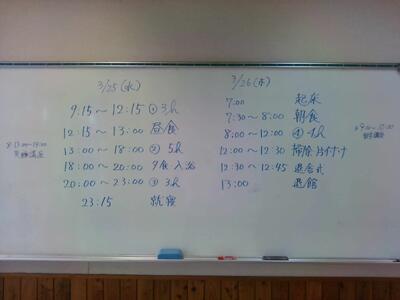 3/25(水)
9:15～12:15 ① 3h
12:15～13:00 昼食
13:00～18:00 ② 5h
18:00～20:00 夕食 入浴
20:00～23:00 ③ 3h
23:15 就寝
3/26(木)
7:00 起床
7:30～8:00 朝食
8:00～12:00 ④ 4h
12:00～12:30 掃除 片付け
12:30～12:45 退舎式
13:00 退館